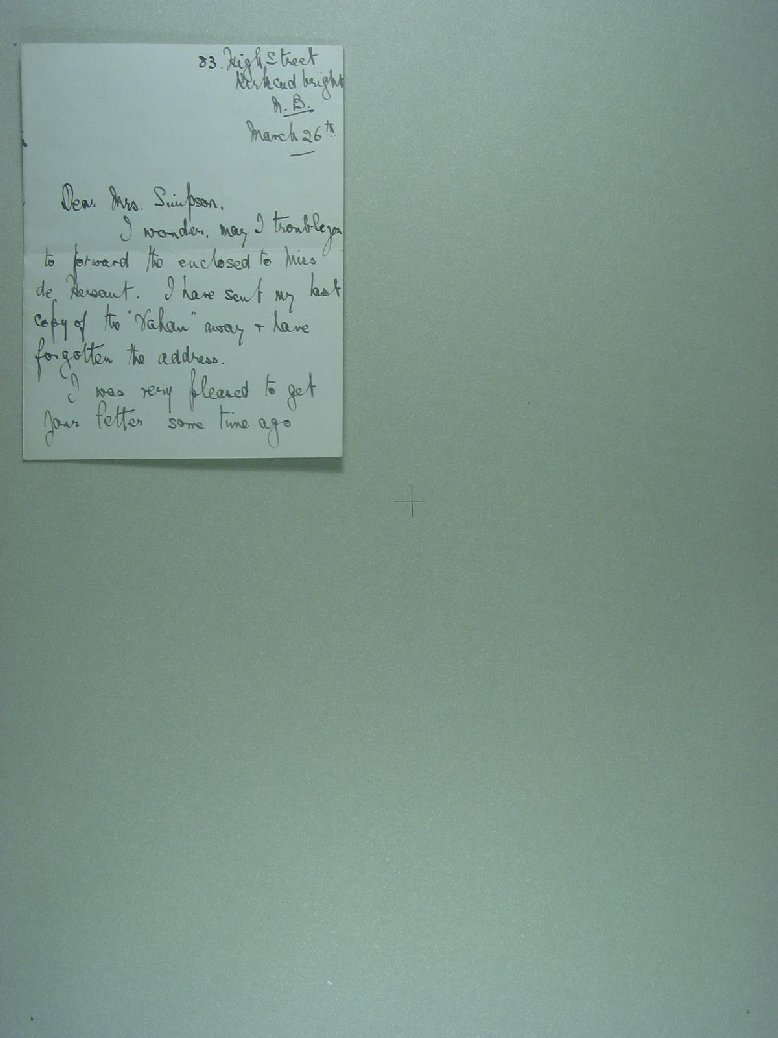 83. High Street
Kirkcudbright
N.B.
March 26th
Dear Mrs. Simpson.
I wonder, may I trouble you
to forward the enclosed to Miss
de Hersant. I have sent my last
copy of the "Vahan" away & have
forgotten the address.
I was very pleased to get
your letter some time ago